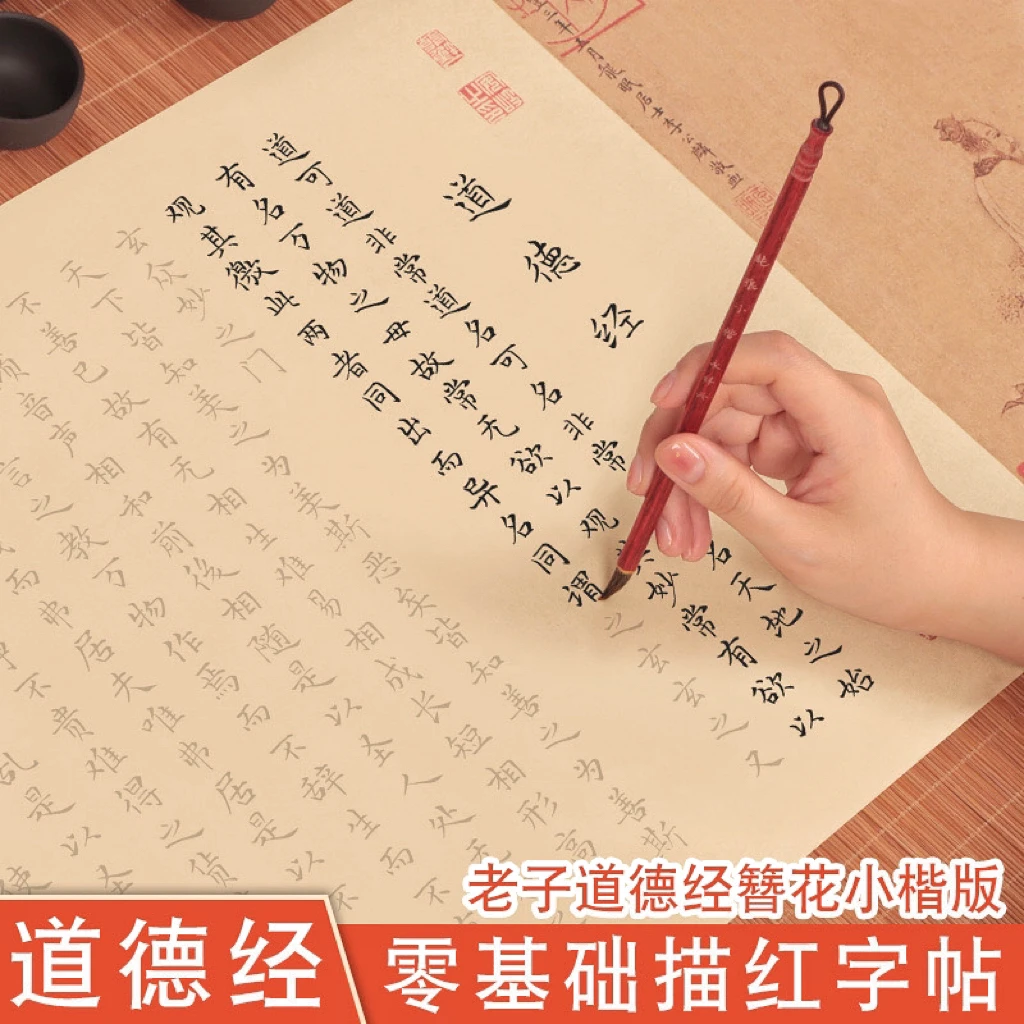 道德经
道可道非常道名可名非常名天地之始
有名万物之母故常无欲以观其妙常有欲以
观其徼此两者同出而异名同谓之玄玄之又
玄众妙之门
天下皆知美之为美斯恶矣皆知善之为善斯
不善已故有无相生难易相成长短相形高
音声相和前後相随是以圣人处无
言之教万物作焉而不辞生而不
而弗居夫唯弗居是以不
不贵难得之货
乱是以圣
老子道德经簪花小楷版
道德经
零基础描红字帖